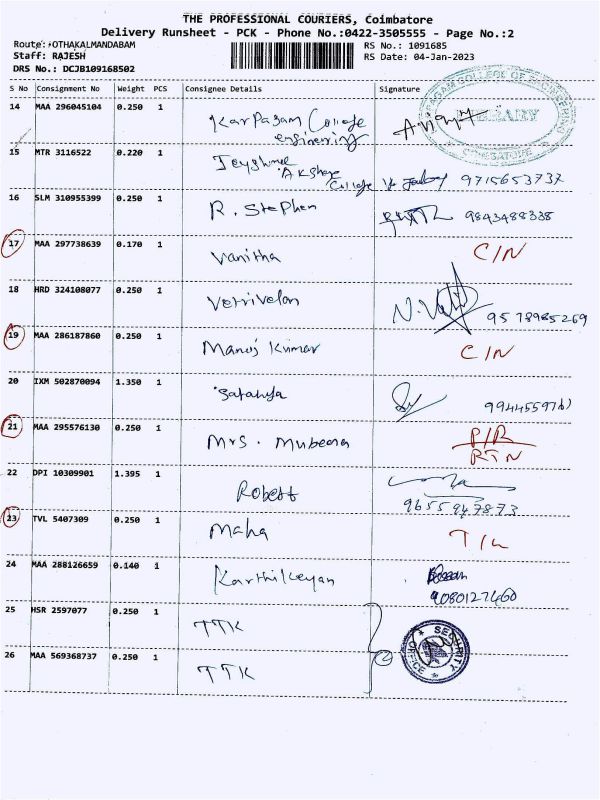 THE PROFESSIONAL COURIERS, Coimbatore
Delivery Runsheet - PCK - Phone No.:0422-3505555 - Page No.:2
Route: OTHAKALMANDABAM
RS No.: 1091685
Staff: RAJESH
RS Date: 04-Jan-2023
DRS No.: DCJB109168502
S No Consignment No Weight PCS Consignee Details Signature
14 MAA 296045104 0.250 1 Karpagam College
engineering
15 MTR 3116522 0.220 1 Akshaya
College 9715653737
16 SLM 310955399 0.250 1 R. Stephen 9843488338
17 MAA 297738639 0.170 1 Vanitha C/N
18 HRD 324108077 0.250 1 Vetrivelan 9578985269
19 MAA 286187860 0.250 1 Manoj Kumar C/N
20 IXM 502870094 1.350 1
21 MAA 295576130 0.250 1 Mrs. Mubeena P/R
RTN
22 DPI 10309901 1.395 1 Robert
9655947873
23 TVL 5407309 0.250 1 Maha
24 MAA 288126659 0.140 1 Karthikeyan
9080127460
25 HSR 2597077 0.250 1 TTK
SECURITY OFFICE
26 MAA 569368737 0.250 1 TTK